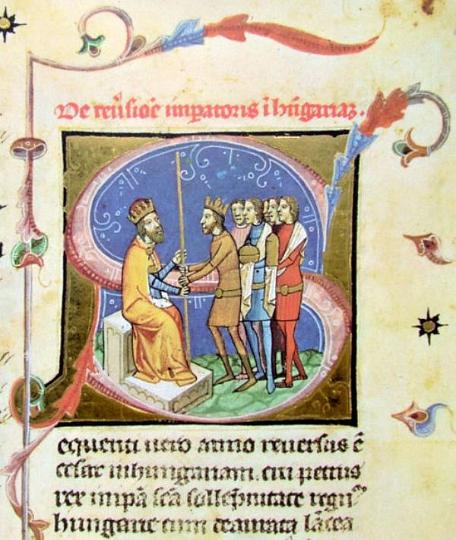 De reũsiõe impatoris ĩ hũgariaz.
S
equenti uero anno reuersus ẽ
cesar in hungariam. cui petrus
rex in ipã sc̃a sollempnitate regnũ
hungarie cum deaurata lãcea